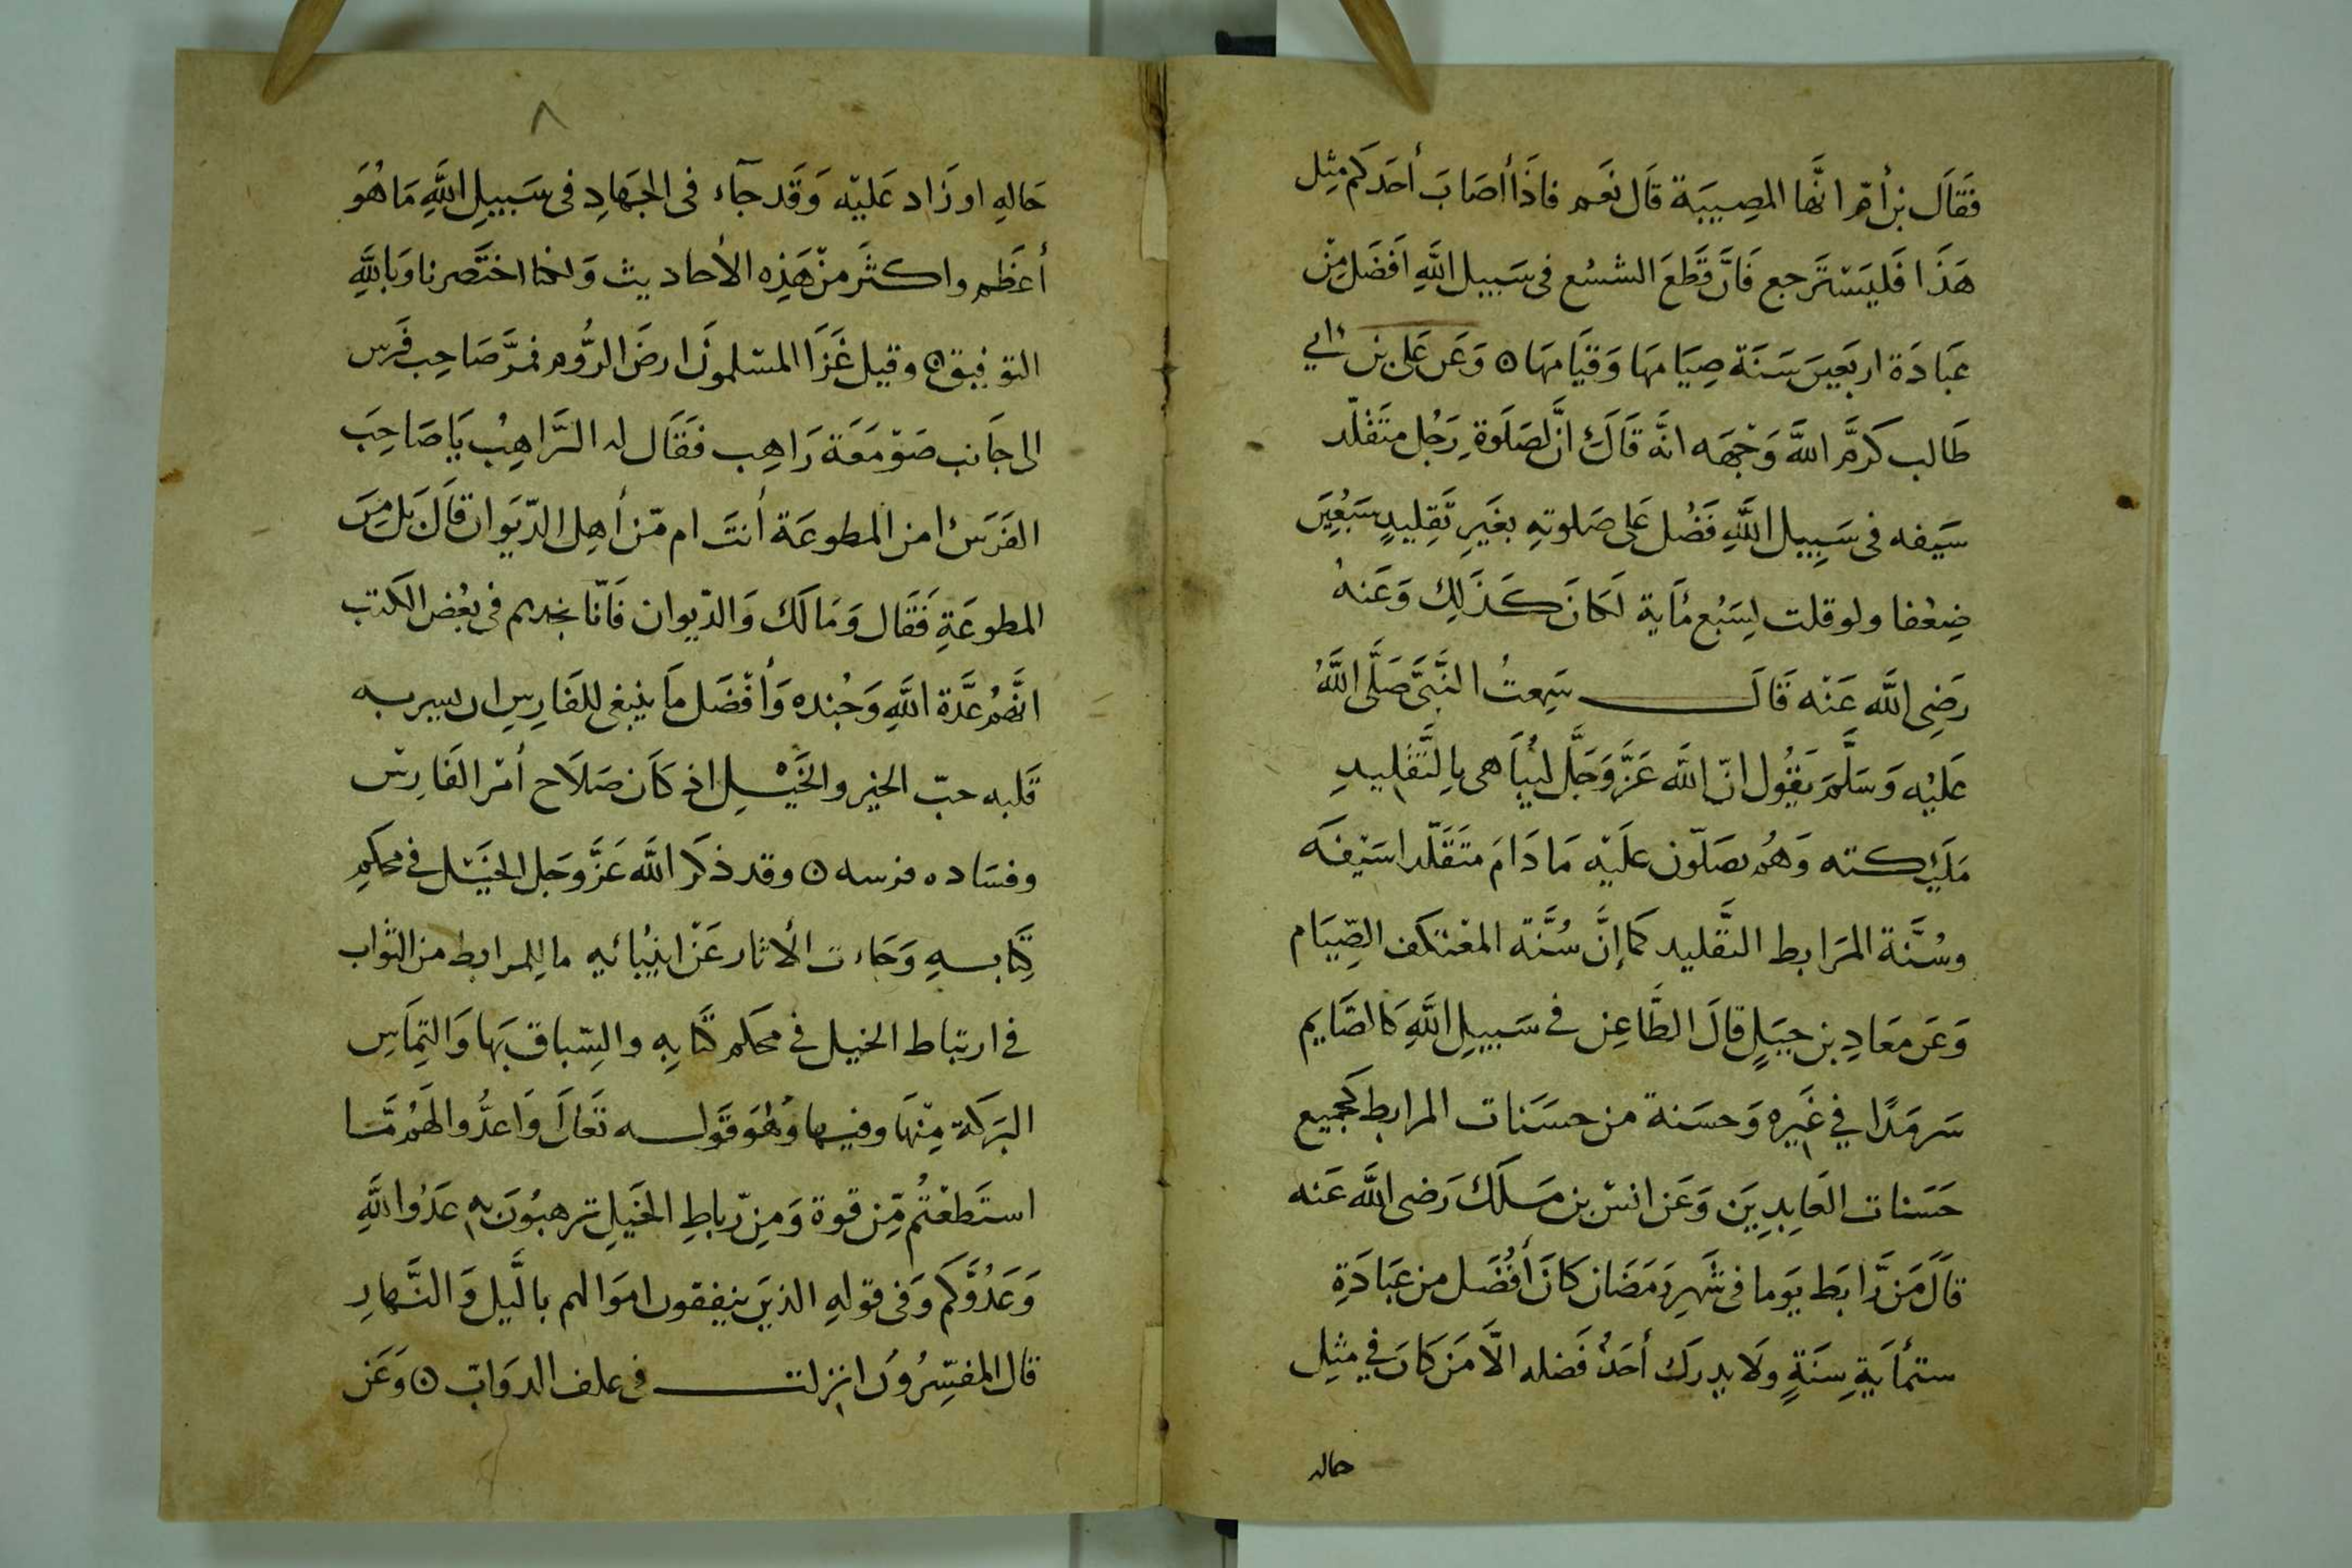 فَقَالَ بن أمّ انَّها المصِيبَة قَال نَعَم فاذَا أصَابَ أحَدكَم مِثِل
هَذَا فَليَسْتَرجع فَانَّ قَطعَ الشسْع فى سَبيل اللَّهِ اَفضَل مِنْ
عبَادَة اربَعينَ سَنَة صِيَامهَا وَقيَامهَا ۞ وَعَن عَلى بن ابي
طَالب كَرَّمَ اللَّه وَجْهَه انَّه قَالَ انَّ لصَلَوة رَجُل متَقَلّد
سَيفه فى سَبِيل اللَّهِ فَضْل عَلى صَلوتهِ بغَيرِ تَقِليدٍ سَبْعِينَ
ضِعْفا ولو قلت لِسَبْع مَاية لكَانَ كَذَلِكَ وَعَنهُ
رَضِى اللَّه عَنْه قَالَ سَمِعتُ النَّبَىَّ صَلَّى اللَّهُ
عَليْه وَسَلَّمَ يَقُول انّ اللَّه عَزَّ وَجَلَّ ليُبَاهى بِالتَّقليدِ
مَليِكته وَهُم يصَلّون عليْه مَا دَامَ متَقَلّدا سَيْفَه
وسُنَّة المرَابط التَّقليد كما إنَّ سُنَّة المعْتكف الصِّيَام
وَعَن مَعَادِ بن جبَلٍ قالَ الطَّاعِن في سَبيلِ اللَّهِ كَالصَّايم
سَرمَدًا في غَيره وَحسَنة من حسَنات المرابط كجميع
حَسَنات العَابِدِينَ وَعَن انسْ بن مَلك رَضى اللَّه عَنه
قالَ مَن رَّابَط يَوما فى شَهرِ رَمَضَان كَانَ أفْضَل من عبَادَةِ
ستمأيةِ سِنَةٍ ولَا يدرَك أحَدٌ فَضله الَّا مَن كَانَ في مثِل
حاله
٨
حَالهِ او زَاد عَليْه وَقَد جآء فى الجهَادِ فى سَبيلِ اللَّهِ مَا هُوَ
أعظَم واكثَر منْ هَذِه الأحاديث وَانما اختَصرنا وَبِاللَّهِ
التوفيق ۞ وقيل غَزَا المسْلمونَ ارضَ الرُّوم فمرَّ صَاحِب فَرَس
الى جَانب صَوْمَعَة رَاهِب فقَال له الرَّاهِبُ يَا صَاحِبَ
الفَرَسْ امن المطوعَة أنتَ ام مّن أهلِ الدّيوَان قَالَ بَل مِنَ
المطوعَةِ فَقَال وَمَا لَكَ وَالدّيوان فَانّا نجدهم فى بعْض الكتب
انَّهُم عدَّة اللَّهِ وَجُنده وَأفْضَل مَا ينْبغى للفَارِس ان يسيربه
قَلبه حبّ الخير والخَيْل اذ كَان صَلَاح أمْر الفَارِسْ
وفسَاده فرسه ۞ وقد ذكَر اللَّه عَزَّ وَجَل الخَيْل في محكمِ
كِتَابهِ وَجَاءت الأثار عَنْ انبْيائهِ ما لِلمرابط من الثواب
في ارتباط الخيل في محكم كتَابِهِ والسّباق بهَا وَالتِمَاسِ
البَركَة مِنْهَا وفيها وَهُوَ قَوله تَعَالَى وَاعدُّوا لهَمُ مَّا
استَطعْتُم مّن قوة وَمِن رّباطِ الخَيل ترهبُونَ به عَدُوا للَّهِ
وَعَدُوَّكم وَفى قولهِ الذينَ ينفقون اموَالهم باللَّيل وَالنَّهارِ
قال المفسِّرُونَ انزلت فى علف الدوَابّ ۞ وَعَن